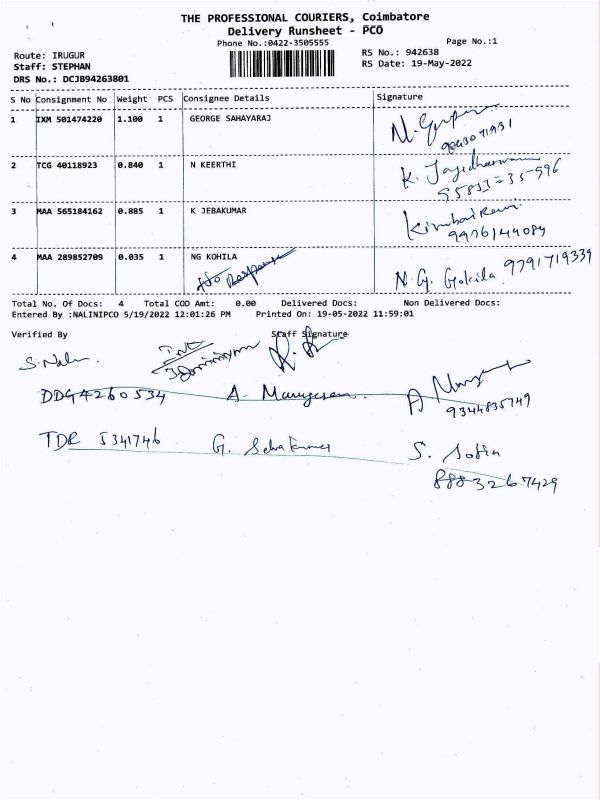 THE PROFESSIONAL COURIERS, Coimbatore
Delivery Runsheet - PCO
Phone No.:0422-3505555
Page No.:1
Route: IRUGUR
RS No.: 942638
Staff: STEPHAN
RS Date: 19-May-2022
DRS No.: DCJB94263801
S No Consignment No Weight PCS Consignee Details Signature
1 IXM 501474220 1.100 1 GEORGE SAHAYARAJ
2 TCG 40118923 0.840 1 N KEERTHI
K.
3 MAA 565184162 0.885 1 K JEBAKUMAR
4 MAA 289852709 0.035 1 NG KOHILA
N.G. Gokila 9791719339
Total No. Of Docs: 4 Total COD Amt: 0.00 Delivered Docs: Non Delivered Docs:
Entered By :NALINIPCO 5/19/2022 12:01:26 PM Printed On: 19-05-2022 11:59:01
Verified By Staff Signature
DDG4260534 A. Murugesan
9344835749
TDR 5341746 G. Selvakumar S. Sofia
8883267429